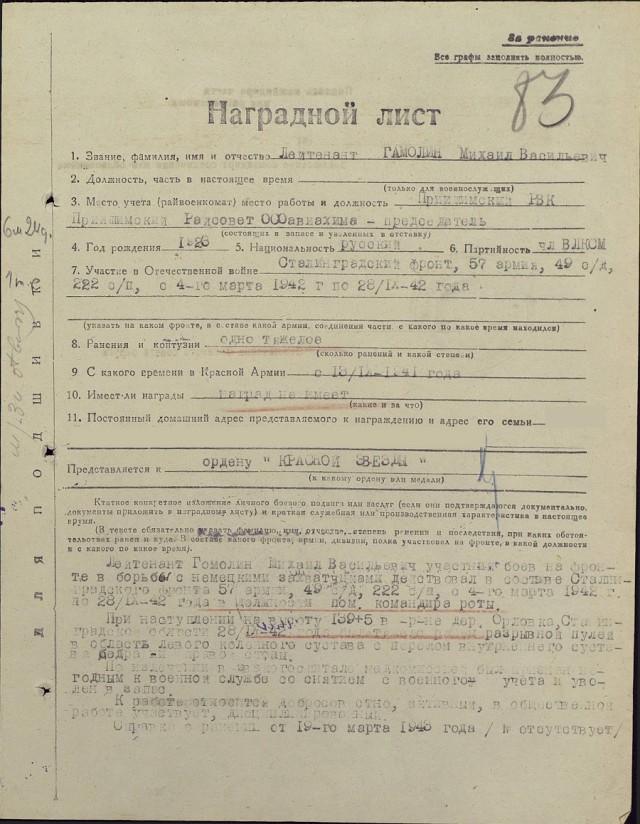 За ранение
Все графы заполнять полностью.
83
Наградной лист
1. Звание, фамилия, имя и отчество Лейтенант ГАМОЛИН Михаил Васильевич
2. Должность, часть в настоящее время
(только для военнослужащих)
3. Место учета (райвоенкомат) место работы и должность Приишимский РВК
Приишимский Райсовет ОСОавиахима - председатель
(состоящих в запасе и уволенных в отставку)
4. Год рождения 1923 5. Национальность русский 6. Партийность чл ВЛКСМ
7. Участие в Отечественной войне Сталинградский фронт, 57 армия, 49 с/д,
222 с/п, с 4-го марта 1942 г по 28/IX-42 года
(указать на каком фронте, в составе какой армии, соединения части, с какого по какое время находился)
8. Ранения и контузии одно тяжелое
(сколько ранений и какой степени)
9 С какого времени в Красной Армии с 13/IX-1941 года
10. Имеет-ли награды наград не имеет
(какие и за что)
11. Постоянный домашний адрес представляемого к награждению и адрес его семьи
Представляется к ордену " КРАСНОЙ ЗВЕЗДЫ "
(к какому ордену или медали)
Краткое конкретное изложение личного боевого подвига или заслуг (если они подтверждаются документально,
документы приложить к наградному листу) и краткая служебная или производственная характеристика в настоящее
время.
(В тексте обязательно указать фамилию, имя, отчество, степень ранения и последствия, при каких обстоя-
тельствах ранен и куда. В составе какого фронта, армии, дивизии, полка участвовал на фронте, в какой должности
и с какого по какое время).
Лейтенант Гомолин Михаил Васильевич участник боев на фрон-
те в борьбе с немецкими захватчиками действовал в составе Сталин-
градского фронта 57 армии, 49 с/д, 222 с/п, с 4-го марта 1942 г.
по 28/IX-42 года в должности пом. командира роты.
При наступлении на высоту 139+5 в р-не дер. Орловка, Сталин-
градской области 28/IX-42 разрывной пулей
в область левого коленного сустава с
бедра
По излечении в
годным к военной службе со снятием с военного учета и уво-
лен в запас.
К работе относится добросовестно, активный, в общественной
работе участвует, дисциплинированный.
Справка о ранении от 19-го марта 1943 года / № отсутствует/
для подшивки